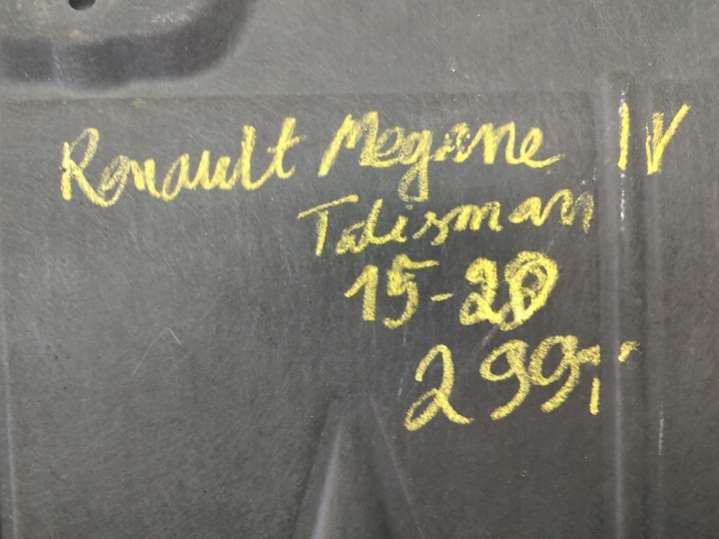 Renault Megane IV
Talisman
15-20
299,-